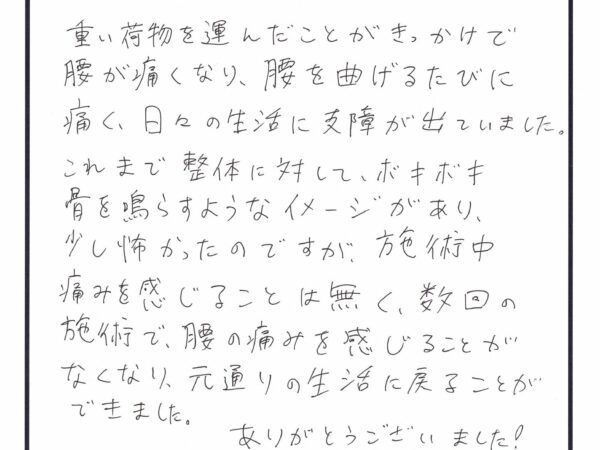 重い荷物を運んだことがきっかけで
腰が痛くなり、腰を曲げるたびに
痛く、日々の生活に支障が出ていました。
これまで整体に対して、ボキボキ
骨を鳴らすようなイメージがあり、
少し怖かったのですが、施術中
痛みを感じることは無く、数回の
施術で、腰の痛みを感じることが
なくなり、元通りの生活に戻ることが
できました。
ありがとうございました!